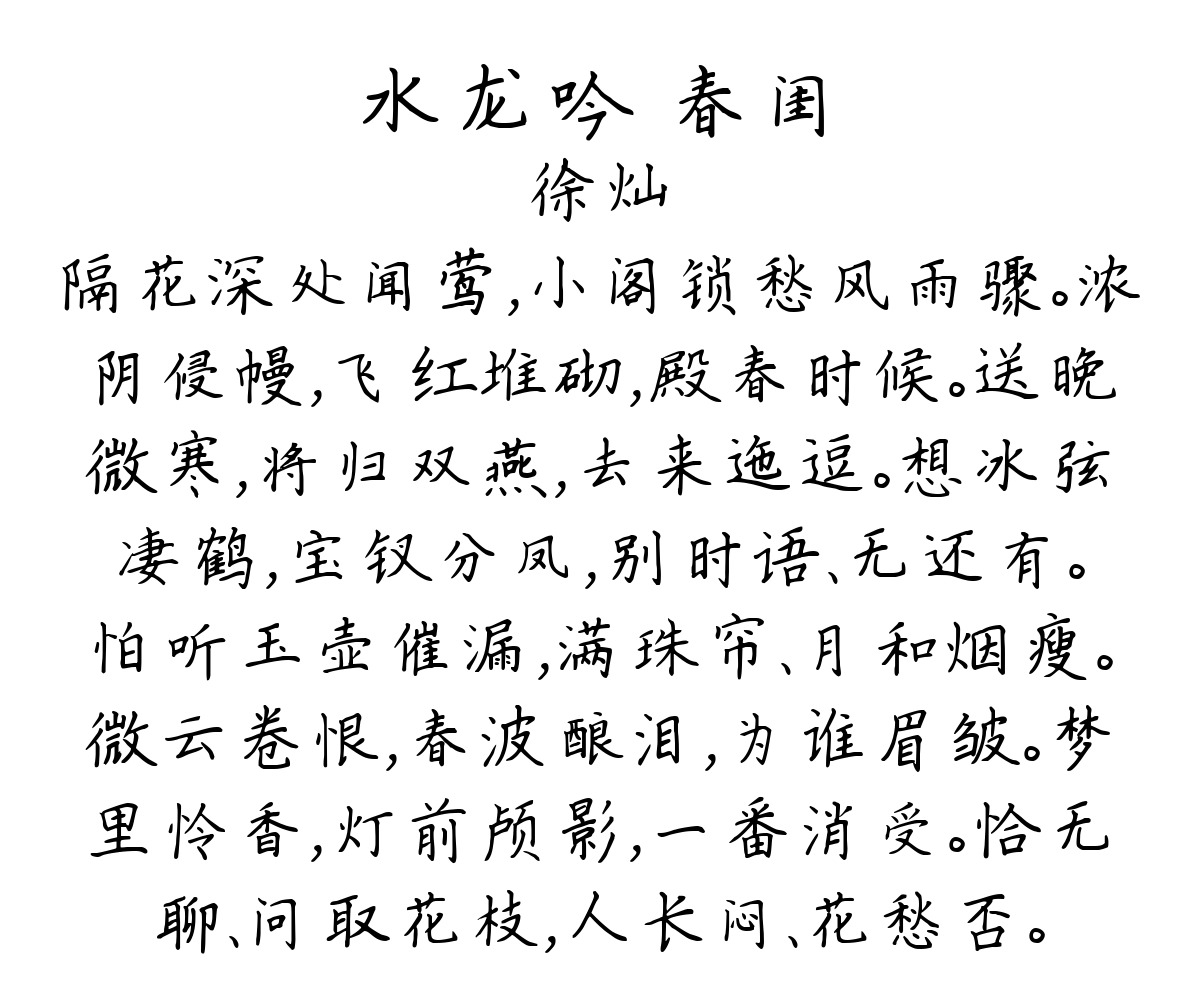 水龙吟 春闺
徐灿
隔花深处闻莺,小阁锁愁风雨骤。浓
阴侵幔,飞红堆砌,殿春时候。送晚
微寒,将归双燕,去来迤逗。想冰弦
凄鹤,宝钗分凤,别时语、无还有。
怕听玉壶催漏,满珠帘、月和烟瘦。
微云卷恨,春波酿泪,为谁眉皱。梦
里怜香,灯前顾影,一番消受。恰无
聊、问取花枝,人长闷、花愁否。